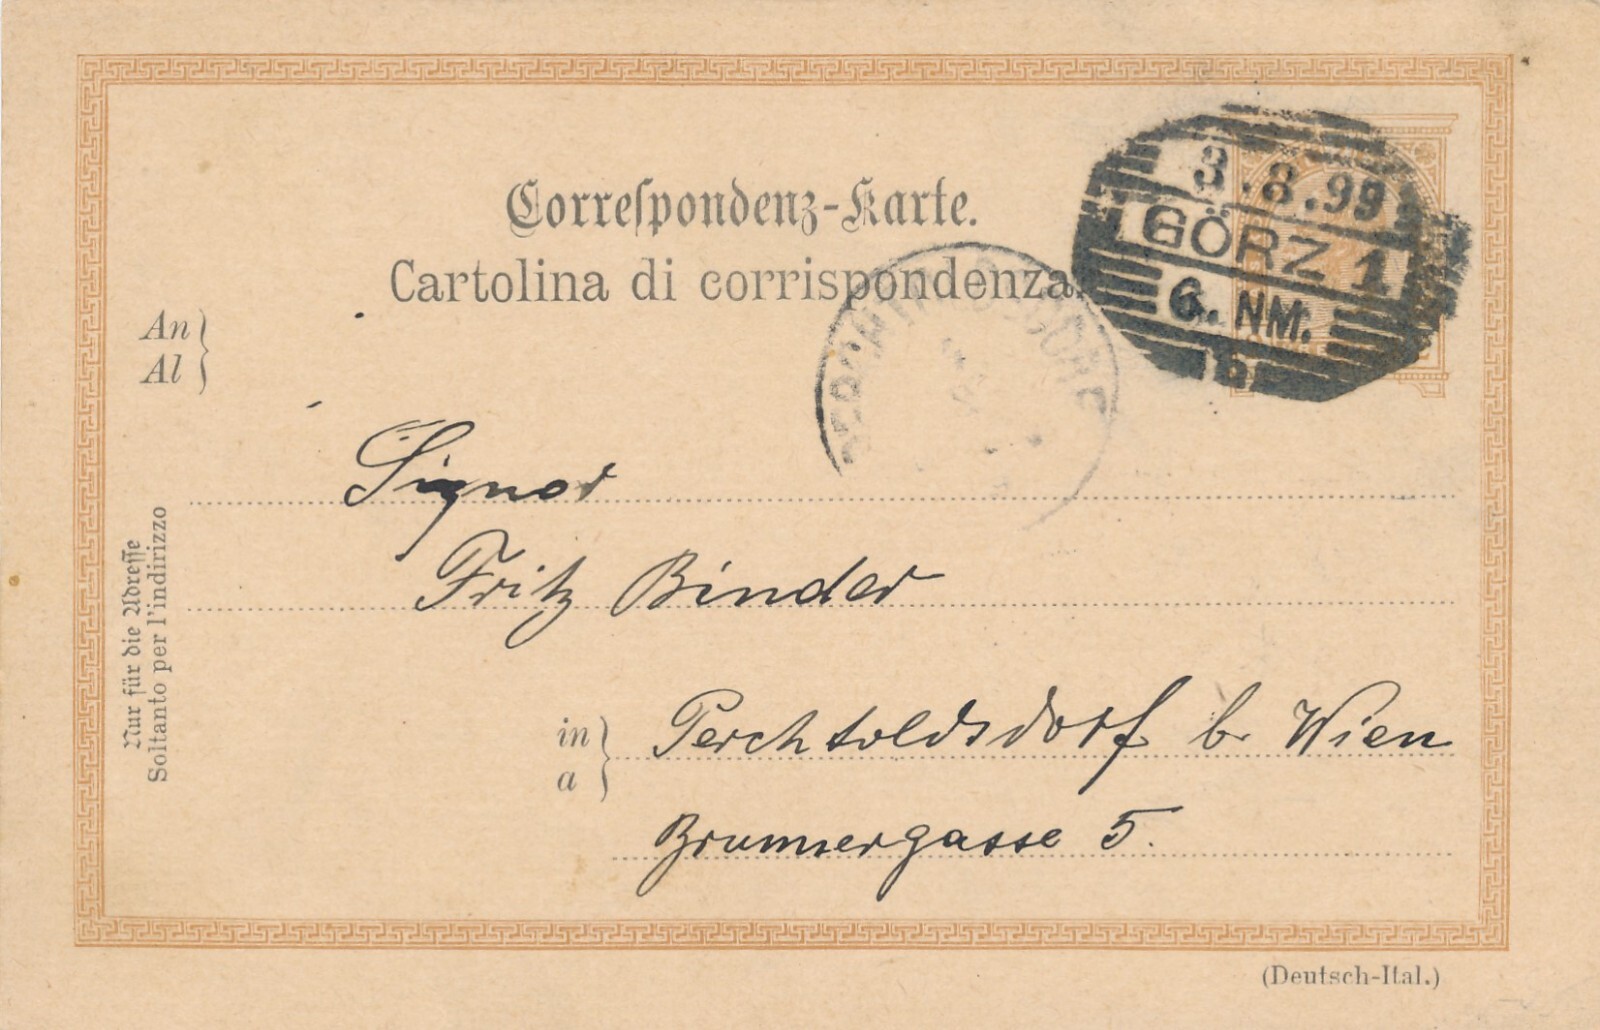 Correſpondenz-Karte.
Cartolina di corrispondenza.
3.8.99
GÖRZ 1
6. NM.
b
An
Al
Signor
Fritz Binder
in
a
Perchtoldsdorf b. Wien
Brunnergasse 5.
Nur für die Adreſſe
Soltanto per l'indirizzo
(Deutsch-Ital.)